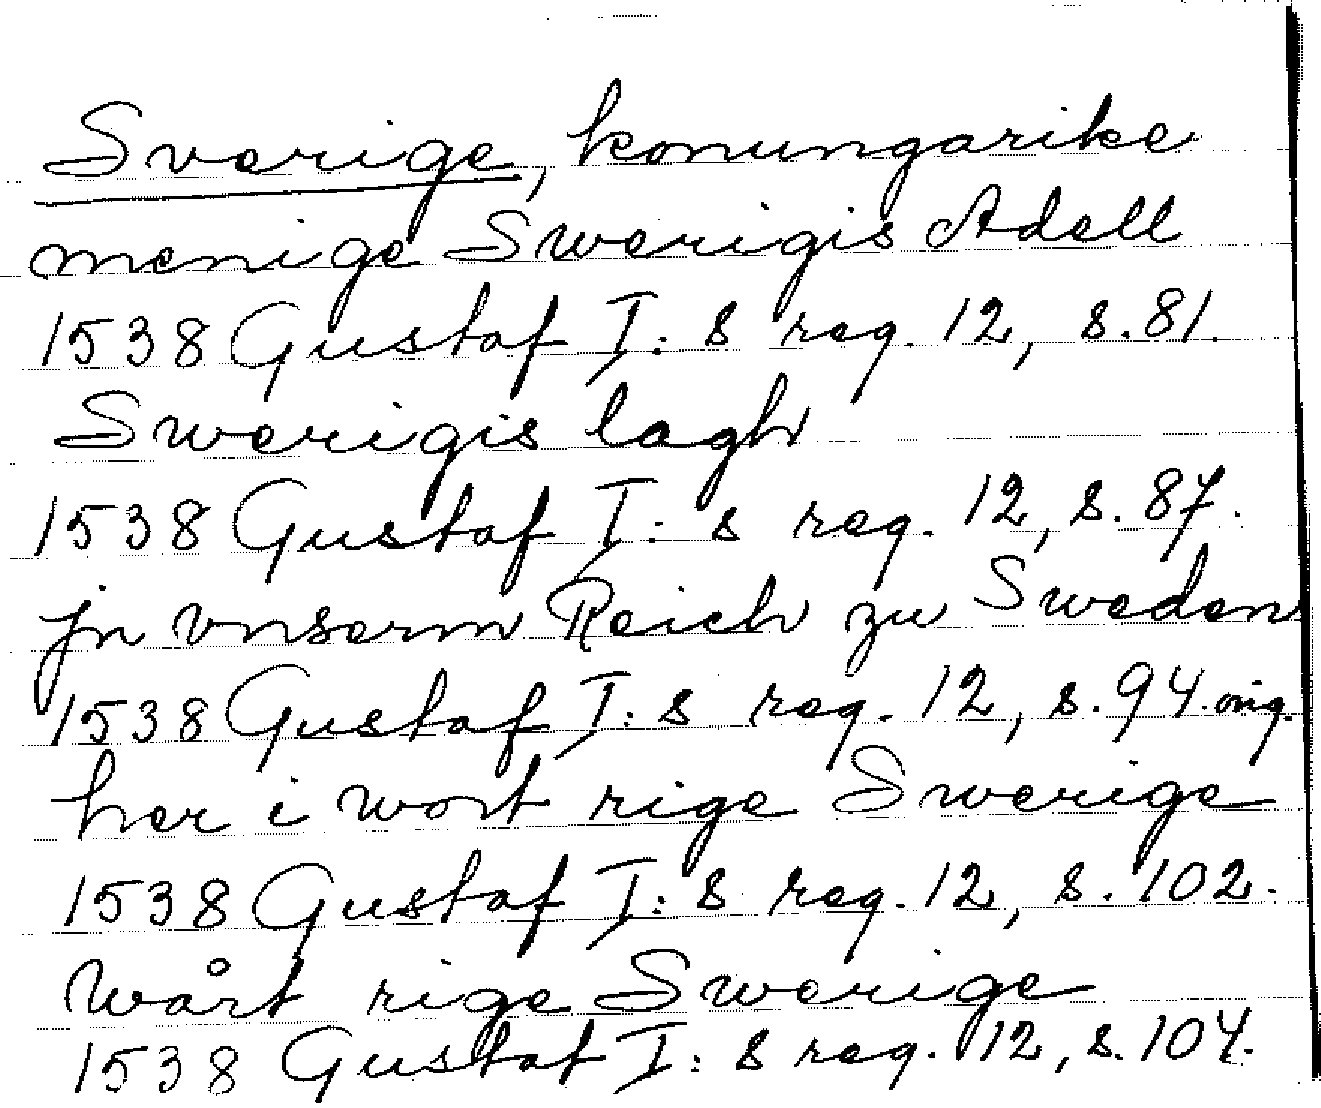 Sverige, konungarike
menige Swerigis Adell
1538 Gustaf I: s reg. 12, s. 81.
Swerigis lagh
1538 Gustaf I: s reg. 12, s. 87.
jn vnserm Reich zu Sweden
1538 Gustaf I: s reg. 12, s. 94. orig.
her i wort rige Swerige
1538 Gustaf I: s reg. 12, s. 102.
wårt rige Swerige
1538 Gustaf I: s reg. 12, s. 104.